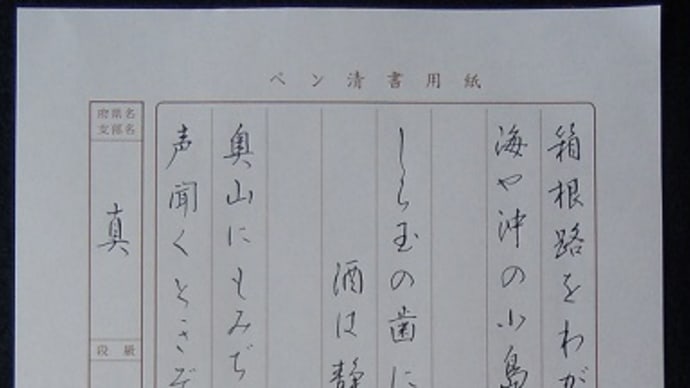 ペン清書用紙
箱根路をわが
海や沖の小島
しら玉の歯に
酒は静
奥山にもみぢ
声聞くときぞ
府県名
支部名
真
段級